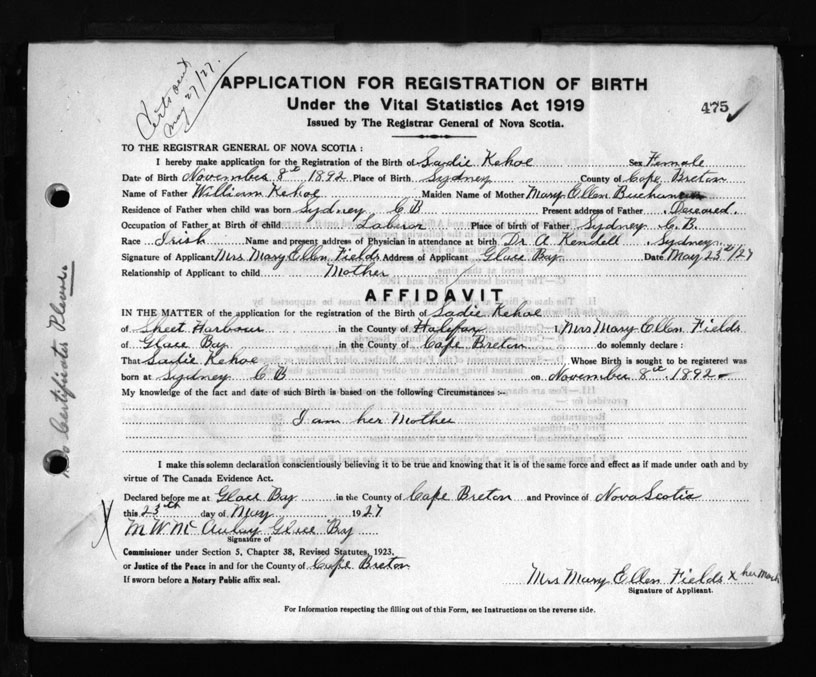 Certs sent
May 27/27.
APPLICATION FOR REGISTRATION OF BIRTH
Under the Vital Statistics Act 1919
475
Issued by The Registrar General of Nova Scotia.
TO THE REGISTRAR GENERAL OF NOVA SCOTIA :
I hereby make application for the Registration of the Birth of Sadie Kehoe Sex Female
Date of Birth November 8th 1892 Place of Birth Sydney County of Cape Breton
Name of Father William Kehoe Maiden Name of Mother Mary Ellen Buchanan
Residence of Father when child was born Sydney C B Present address of Father Deceased.
Occupation of Father at Birth of child Laborer Place of birth of Father Sydney C.B.
Race Irish Name and present address of Physician in attendance at birth Dr A Kendell Sydney
Signature of Applicant Mrs Mary Ellen Fields Address of Applicant Glace Bay Date May 23rd/27
Relationship of Applicant to child Mother
AFFIDAVIT
IN THE MATTER of the application for the registration of the Birth of Sadie Kehoe
of Sheet Harbour in the County of Halifax I, Mrs Mary Ellen Fields
of Glace Bay in the County of Cape Breton do solemnly declare :
That Sadie Kehoe Whose Birth is sought to be registered was
born at Sydney C B on November 8th 1892
My knowledge of the fact and date of such Birth is based on the following Circumstances :—
I am her Mother
I make this solemn declaration conscientiously believing it to be true and knowing that it is of the same force and effect as if made under oath and by
virtue of The Canada Evidence Act.
Declared before me at Glace Bay in the County of Cape Breton and Province of Nova Scotia
this 23th day of May 1927
X M W McAulay Glace Bay
Signature of
Commissioner under Section 5, Chapter 38, Revised Statutes, 1923,
or Justice of the Peace in and for the County of Cape Breton
If sworn before a Notary Public affix seal.
Mrs Mary Ellen Fields x her Mark
Signature of Applicant.
For Information respecting the filling out of this Form, see Instructions on the reverse side.
Certificates Please.